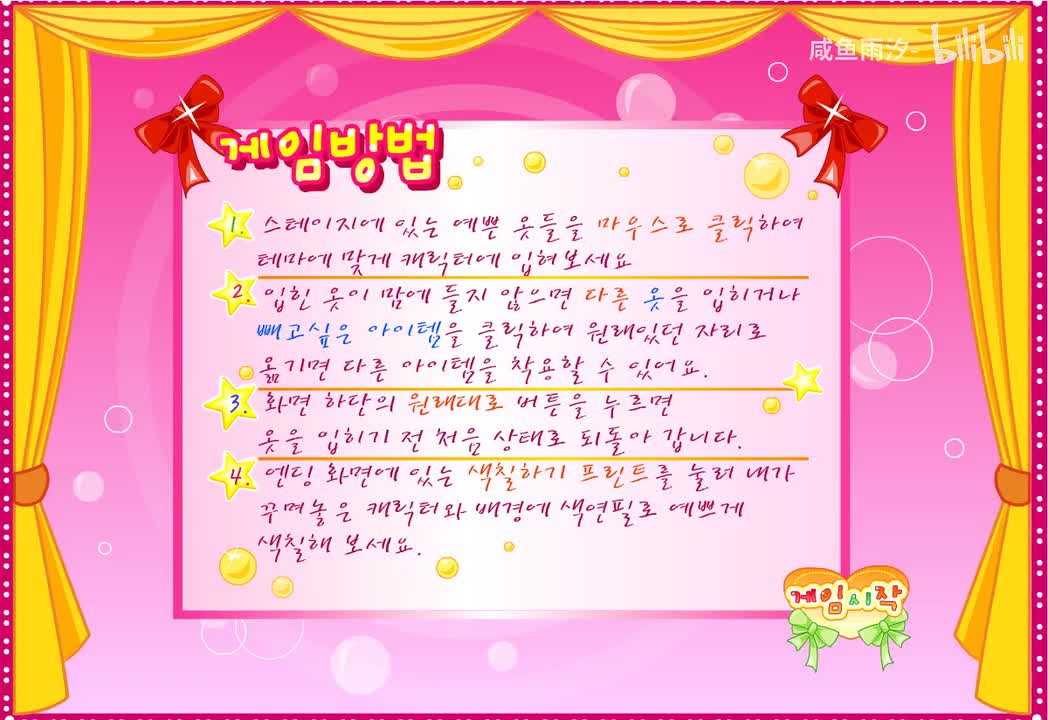 咸鱼雨汐- bilibili
게임방법
1. 스테이지에 있는 예쁜 옷들을 마우스로 클릭하여
테마에 맞게 캐릭터에 입혀보세요
2. 입힌 옷이 맘에 들지 않으면 다른 옷을 입히거나
빼고싶은 아이템을 클릭하여 원래있던 자리로
옮기면 다른 아이템을 착용할 수 있어요.
3. 화면 하단의 원래대로 버튼을 누르면
옷을 입히기 전 처음 상태로 되돌아 갑니다.
4. 엔딩 화면에 있는 색칠하기 프린트를 눌러 내가
꾸며놓은 캐릭터와 배경에 색연필로 예쁘게
색칠해 보세요.
게임시작